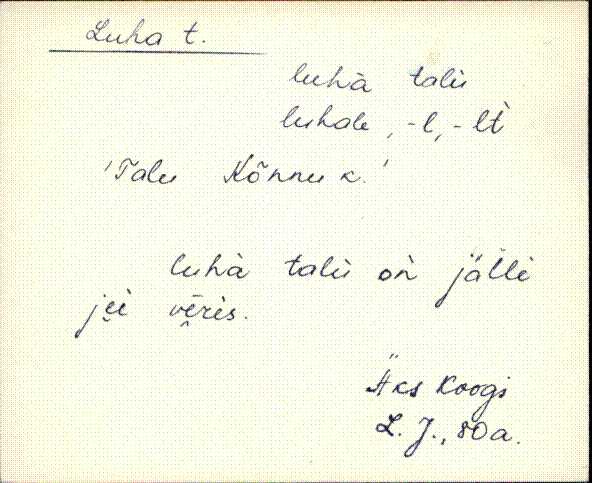 Luha t.
luhà talù
luhale, -l, -lt
'Talu Kõnnu k.'
luhà talù on jälle
jẹi vēris.
Äks Koogi
L. J., 80 a.